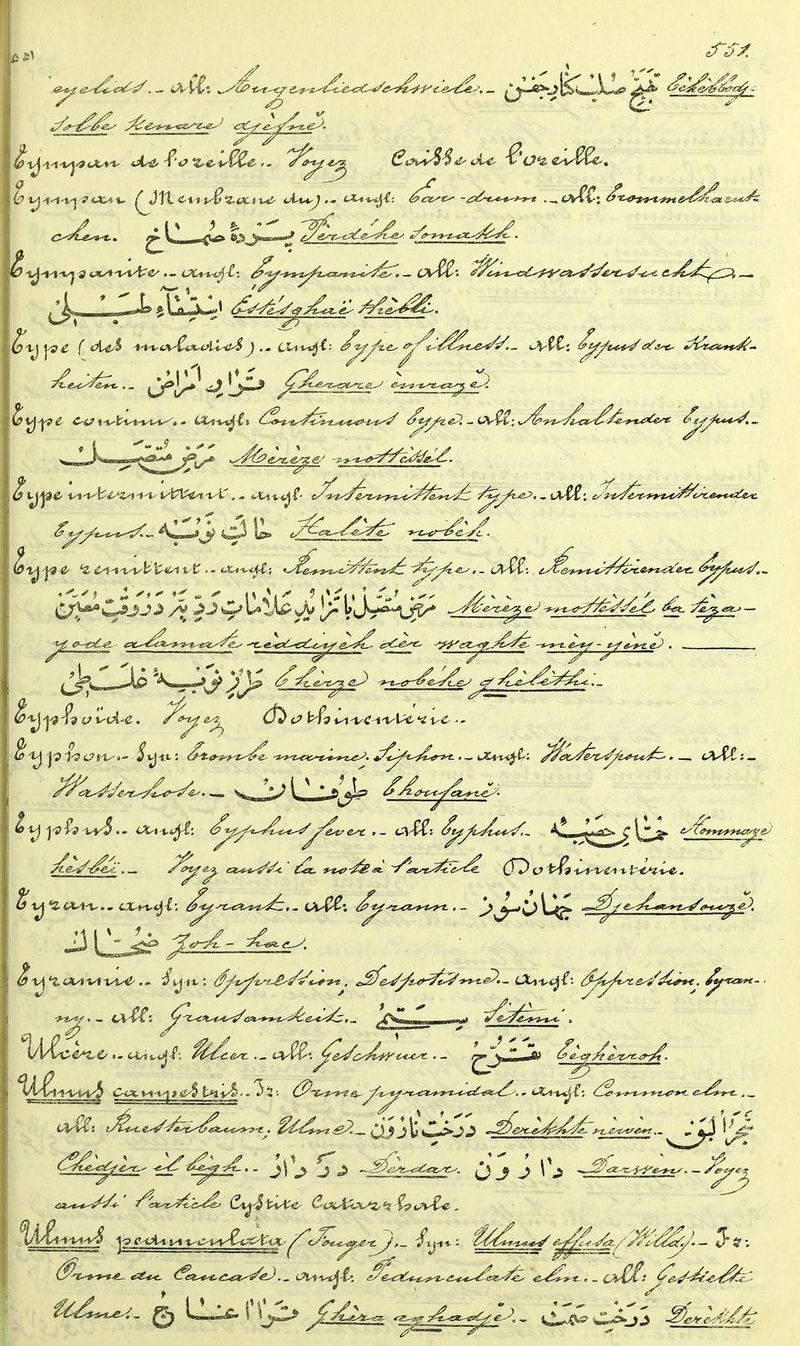 551.
eyelids. _ All: Augenliedschwiele. _
solbé kenaré djefné.
Tympan de l'oreille. _ Voyez Caisse de l'oreille.
Tympan (Membrane du). _ Angl: Ear-drum. _ All: Trommelhaeut-
chen. Perdéhé somakh.
Tympanite. _ Angl: Tympanite. _ All: Windwassersucht. _
استسقاء طبلى Estisghaë thebli.
Type (des maladies). _ Angl: Type of illness. _ All: Typus der Krank-
heiten. _ امراض Gherare emrazé.
Type continu. _ Angl: Continuous type. _ All: Anhaltender Typus. _
مرض متصل Mérèzé mottéssél.
Type intermittent. _ Angl: Intermittent type. _ All: Intermittirender
Typus. _ حالت نوبه Haleté nobéh.
Type rémittent. _ Angl: Remittent type. _ All: Remittirender Typus. _
Mérèzé mottéssél ba téza_
yode alamaté réddiyéh dér waghté mèy-yéné.
nobéhé ghéléthé. _
Typhoïde. Voyez Dothinentérie. _
Typhon. _ Syn: Trombe marine. Siphon. _ Angl: Waterspout. _ All: _
Wasserhose. _ طوفان Thoufané.
Typhus. _ Angl: Typhus fever. _ All: Typhus. _ Hommaye
hésbéï. _ Voyez aussi la note à l'article Dothinentérie.
Tyran. _ Angl: Tyrant. _ All: Tyrann. _ جهانسوز Djehansouzé.
ضحاك Zoh-hac.
Tyrannie. _ Syn: Oppression. Despotisme. _ Angl: Oppression. Tyran-
ny. _ All: Grausamkeit. _ ستم Sétémi.
Ulcère. _ Angl: Ulcer. _ All: Geschwuer. _ تقرح Téghérroh.
Ulmus campestris. _ Fr: Orme pyramidal. _ Angl: Common elm. _
All: Ruesterbaum. Ulme. _ درخت نارون Derekhté nérwén. _ شجر البق
Chédjér el bégh. _ دردار Derdar. دارون Darwén. _ Voyez
aussi l'article Cystite Catarrhale.
Ulmus pedunculata (Fouger). _ Syn: Ulmus effusa (Willd). _ Fr:
Orme du Caucase. _ Angl: Pedunculate elm. _ All: Gestielte
Ulme. _ قرا اغاج Ghèra aghadjé. _ درخت Derekhté